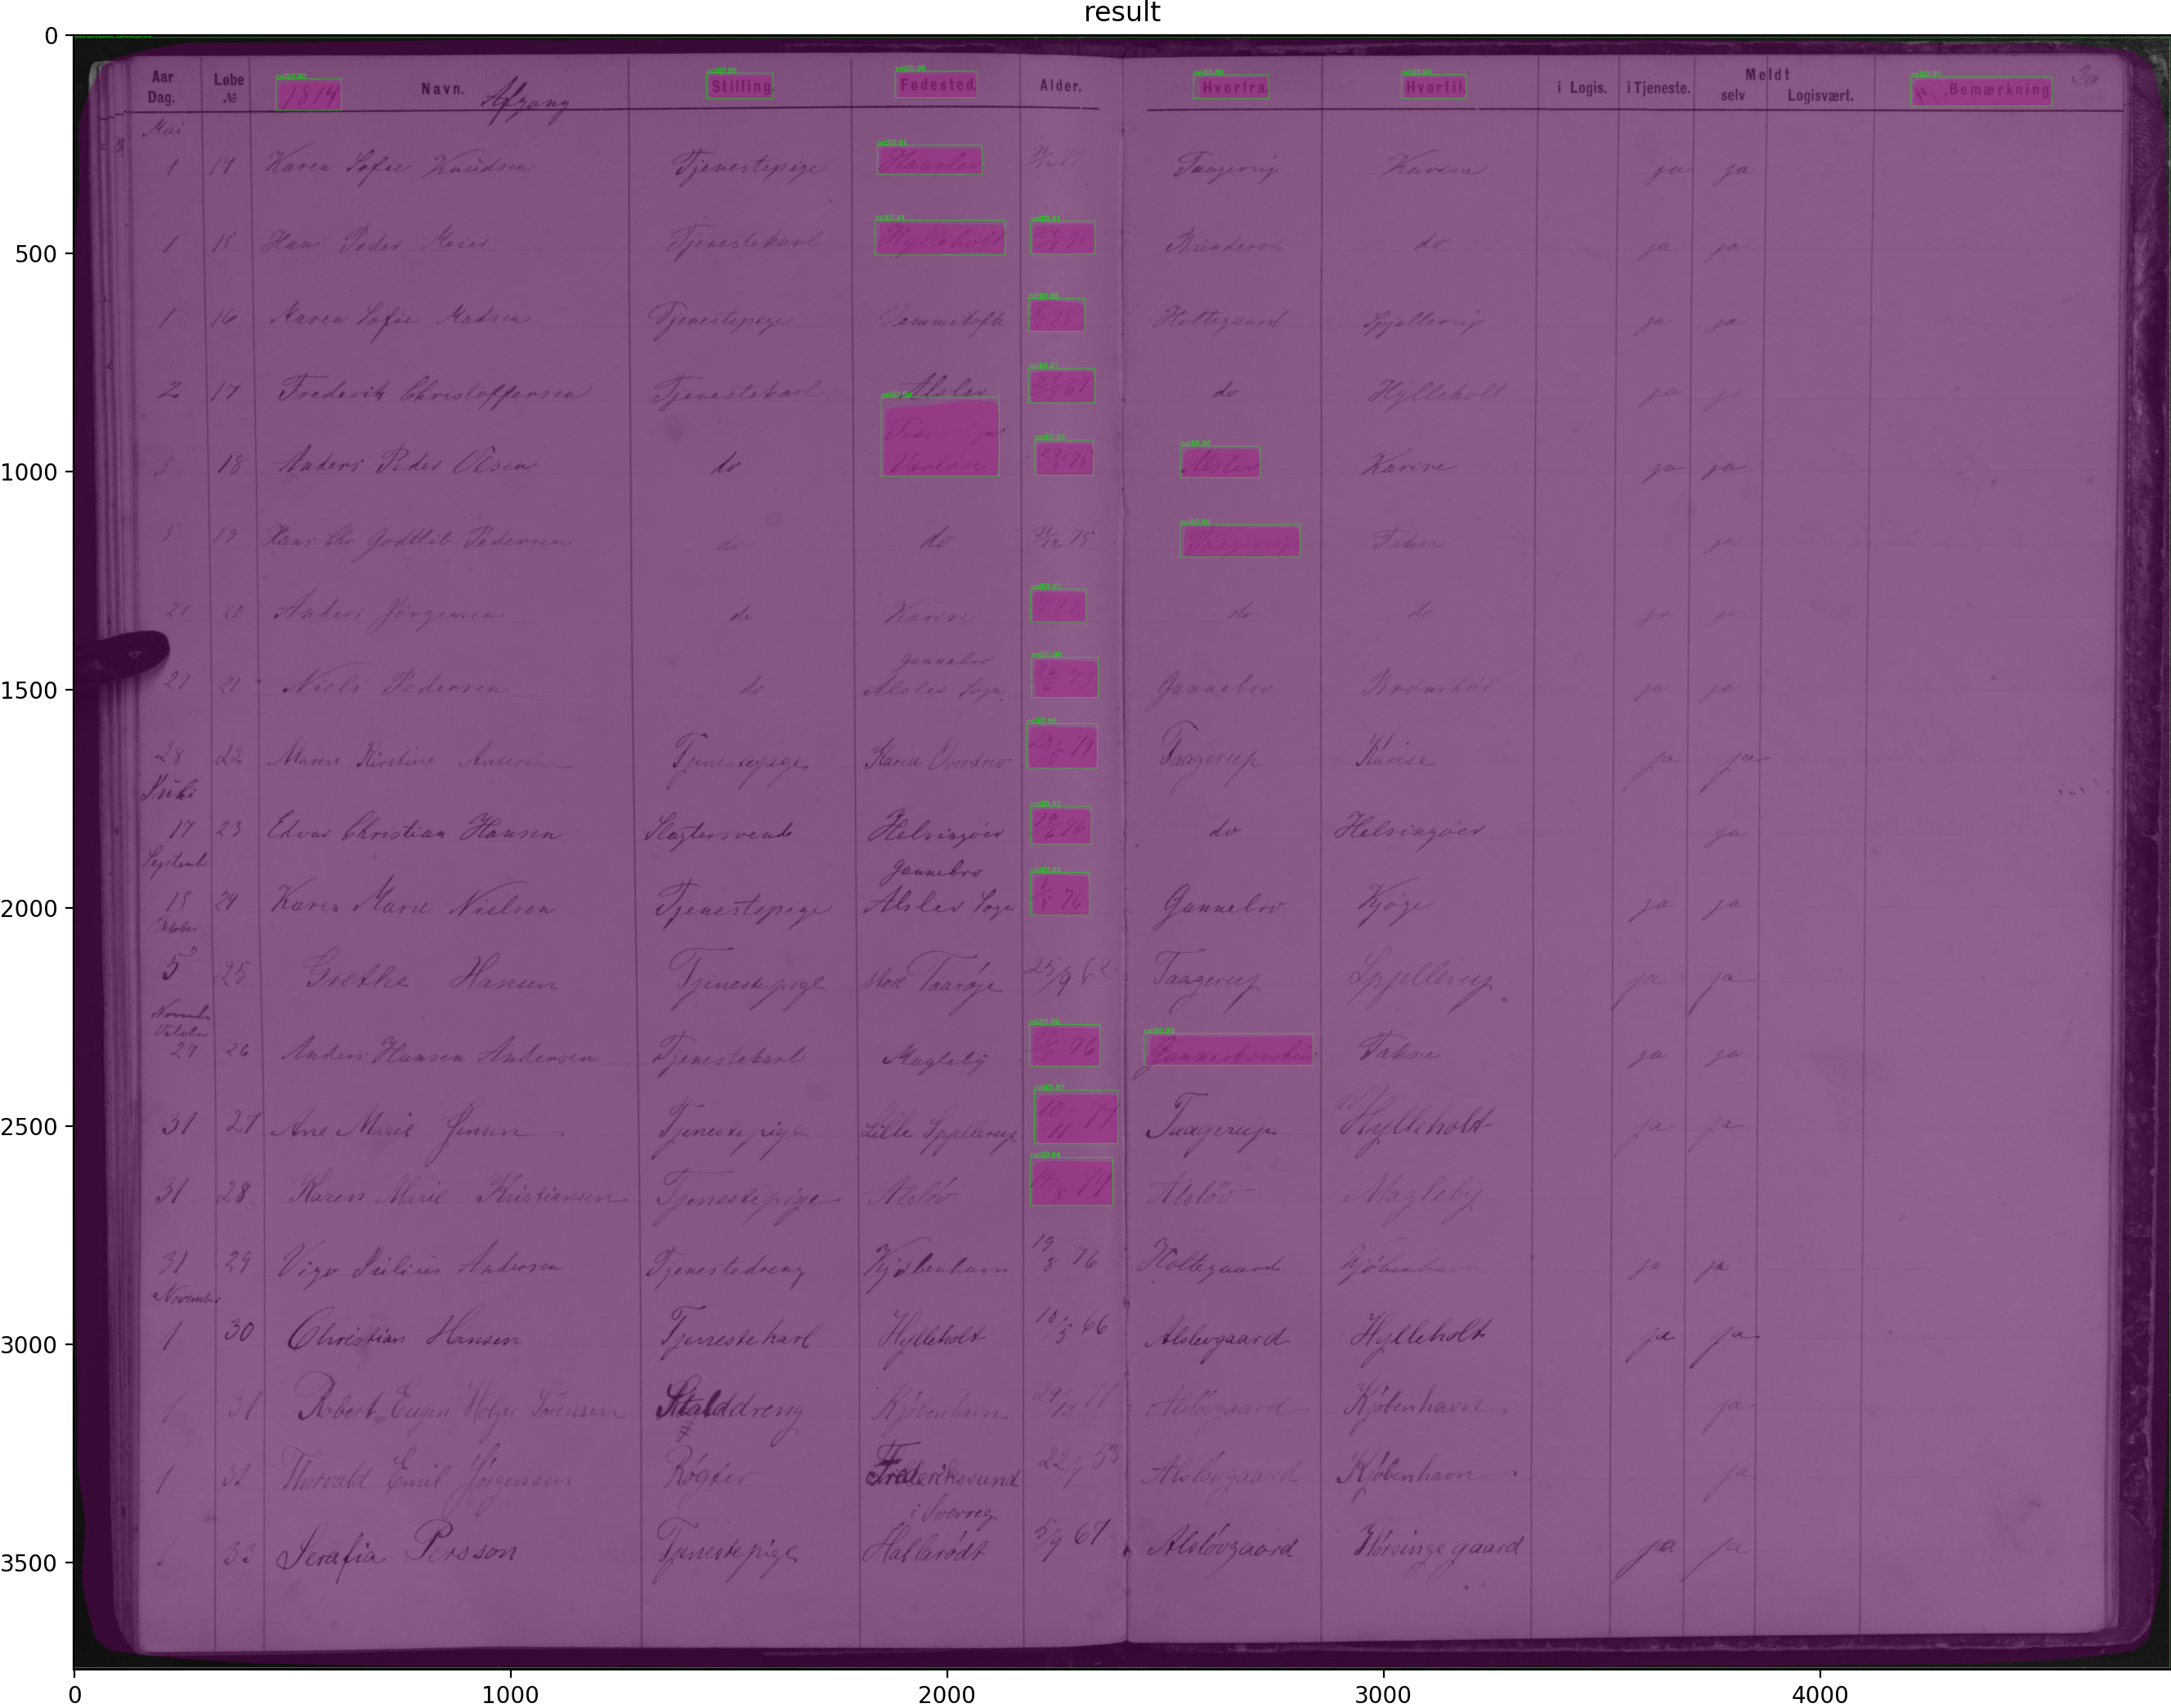 result
Aar Dag. Løbe № 1894 Navn. Afgang Stilling. Fødested. Alder. Hvorfra. Hvortil. i Logis. i Tjeneste. Meldt selv Logisvært. Bemærkning 30
Mai
1 14 Karen Sofie Knudsen Tjenestepige Haarlev 31/12 77 Taagerup Karise ja ja
1 15 Hans Peder Meier Tjenestekarl Hylleholt 75 do ja ja
1 16 Karen Sofie Madsen Tjenestepige Vemmetofte 75 Holtegaard Spjellerup ja ja
2 17 Frederik Christoffersen Tjenestekarl Alslev 67 do Hylleholt ja ja
3 18 Anders Peder Olsen do Vorløse 75 Alslev Karise ja ja
5 19 Hans Chr Godtlib Pedersen do do 31/12 75 Taagerup Fakse ja
27 20 Anders Jørgensen do Karise do do ja ja
27 21 Niels Pedersen do Gannebro Alslev Sogn 26/6 Gannebro Brønshøi ja ja
28 22 Maren Kirstine Andersen Tjenestepige Karise Overdrev 28/5 79 Taagerup Karise ja ja
Juli
17 23 Edvar Christian Hansen Slagtersvend Helsingøer 19/6 76 do Helsingøer ja
September
15 24 Karen Marie Nielsen Tjenestepige Gannebro Alslev Sogn 76 Gannebro Kjøge ja ja
Oktober
5 25 Grethe Hansen Tjenestepige Store Taarøje 25/9 62 Taagerup Spjellerup ja ja
Novembr
Octobr
27 26 Anders Hansen Andersen Tjenestekarl Magleby 76 Ganneskovhus Fakse ja ja
31 27 Ane Marie Jensen Tjenestepige Lille Spjellerup 10/11 77 Taagerup Hylleholt ja ja
31 28 Karen Marie Kristiansen Tjenestepige Alsløv 14/8 79 Alsløv Magleby
31 29 Vigo Julius Andersen Tjenestedreng Kjøbenhavn 19/8 76 Holtegaard Kjøbenhavn ja ja
November
1 30 Christian Hansen Tjenestekarl Hylleholt 10/5 66 Alslevgaard Hylleholt ja ja
1 31 Robert Eugen Holger Sørensen Stalddreng Kjøbenhavn 29/12 77 Alsløvgaard Kjøbenhavn ja
1 32 Thorvald Emil Jørgensen Røgter Frederikssund 22/7 53 Alsløvgaard Kjøbenhavn ja
33 Serafia Persson Tjenestepige i Sverrig Hallarødt 5/9 67 Alsløvgaard Hørsingegaard ja ja
0
500
1000
1500
2000
2500
3000
3500
0 1000 2000 3000 4000